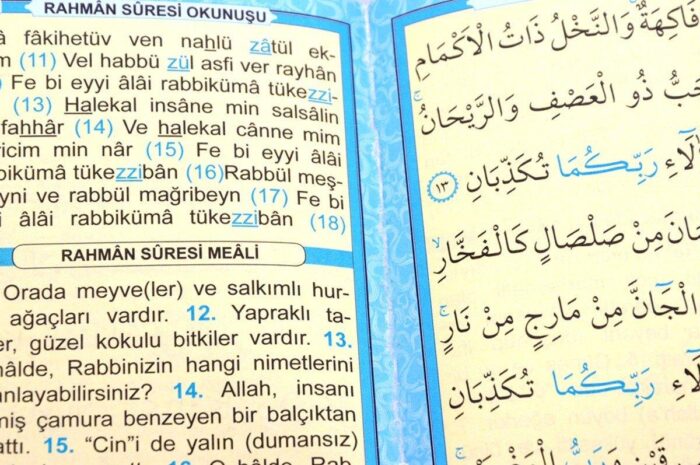 RAHMÂN SÛRESİ OKUNUŞU
fâkihetüv ven nahlü zâtül ek-
(11) Vel habbü zül asfi ver rayhân
Fe bi eyyi âlâi rabbikümâ tükezzi-
(13) Halekal insâne min salsâlin
(14) Ve halekal cânne mim
min nâr (15) Fe bi eyyi âlâi
tükezzibân (16)Rabbül meş-
ve rabbül mağribeyn (17) Fe bi
âlâi rabbikümâ tükezzibân (18)
RAHMÂN SÛRESİ MEÂLİ
Orada meyve(ler) ve salkımlı hur-
ağaçları vardır. 12. Yapraklı ta-
güzel kokulu bitkiler vardır. 13.
Rabbinizin hangi nimetlerini
14. Allah, insanı
çamura benzeyen bir balçıktan
15. “Cin”i de yalın (dumansız)
فَاكِهَةٌ وَالنَّخْلُ ذَاتُ الْاَكْمَامِ
ذُو الْعَصْفِ وَالرَّيْحَانُ
رَبِّكُمَا تُكَذِّبَانِ ١٣
مِنْ صَلْصَالٍ كَالْفَخَّارِ
الْجَٓانَّ مِنْ مَارِجٍ مِنْ نَارٍ
رَبِّكُمَا تُكَذِّبَانِ